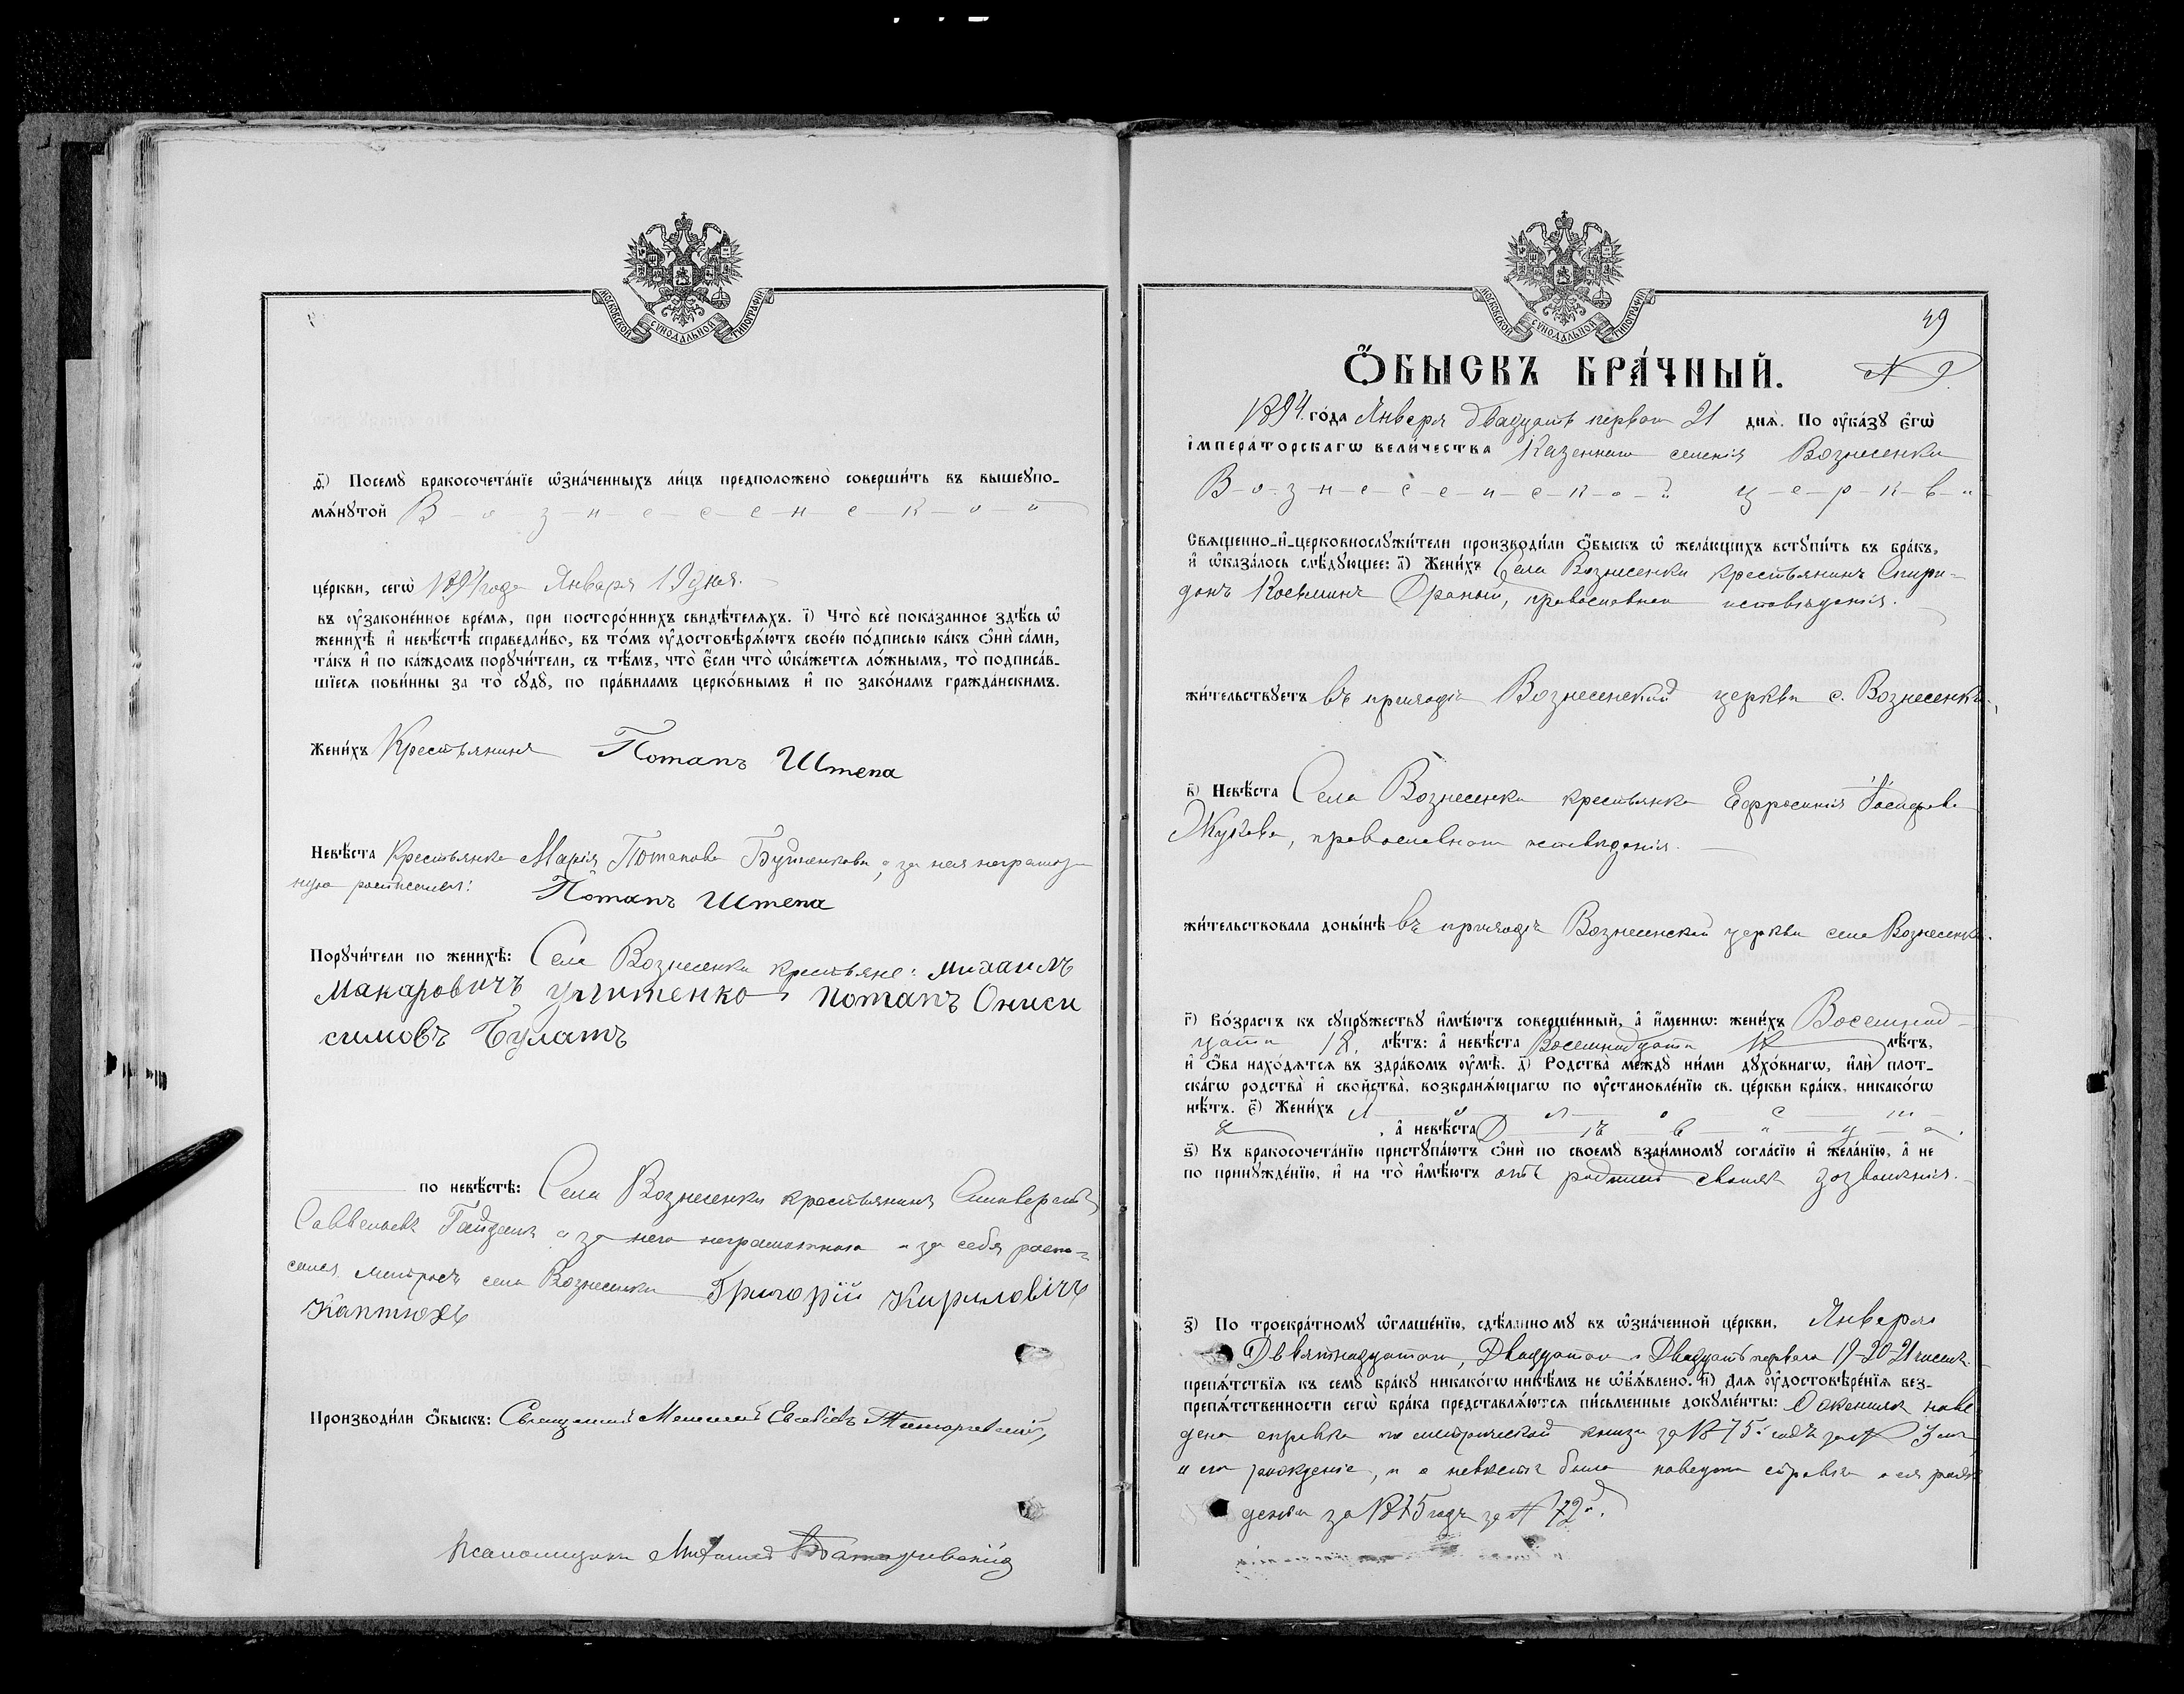 МОСКОВСКОЙ СУНОДАЛЬНОЙ ТИПОГРАФІИ
д҃) Посемꙋ̀ бракосочета́ніе ѡ҆зна́ченныхъ ли́цъ предположено̀ соверши́ть въ вышеꙋпо-
мѧ́нꙋтой В-о-з-н-е-с-е-н-с-к-о-й
це́ркви, сегѡ̀ 1894 года Января 19 дня.
въ ᲂу҆законе́нное вре́мѧ, при посторо́ннихъ свидѣ́телѧхъ. і҃) Что̀ всѐ пока́занное здѣ́сь ѡ҆
женихѣ̀ и҆ невѣ́стѣ справедли́во, въ то́мъ ᲂу҆достовѣрѧ́ютъ свое́ю по́дписью ка́къ ѻ҆нѝ са́ми,
та́къ и҆ по ка́ждомъ порꙋчи́тели, съ тѣ́мъ, что̀ є҆́сли что̀ ѡ҆ка́жется ло́жнымъ, то̀ подписа́в-
шіеся пови́нны за то̀ сꙋдꙋ̀, по пра́виламъ церко́внымъ и҆ по зако́намъ гражда́нскимъ.
Жени́хъ Крестьянинъ Потапъ Штепа
Невѣ́ста Крестьянка Марія Потапова а за нея неграмот-
ную росписался: Потапъ Штепа
Порꙋчи́тели по женихѣ̀: Села Вознесенки крестьяне: михаилъ
Макаровичъ потапъ Ониси
симовъ Булатъ
по невѣ́стѣ: Села Вознесенки крестьянинъ
Савельевъ Гайдакъ а за него неграмотнаго и за себя роспи-
сался села Вознесенки Григорій Кириловічъ
Каптюхъ
Производи́ли ѻ҆́быскъ: Священникъ
Псаломщикъ Михаилъ
49
МОСКОВСКОЙ СУНОДАЛЬНОЙ ТИПОГРАФІИ
Ѻ҆́БЫСКЪ БРА́ЧНЫЙ. № 9
1894. го́да Января двадцать перваго 21 днѧ̀. По ᲂу҆ка́зꙋ є҆гѡ̀
і҆мпера́торскагѡ вели́чества Казеннаго селенія Вознесенки
В-о-з-н-е-с-е-н-с-к-о-й ц-е-р-к-в-и
Свѧще́нно-и҆-церковнослꙋжи́тели производи́ли ѻ҆́быскъ ѡ҆ жела́ющихъ встꙋпи́ть въ бра́къ,
и҆ ѡ҆каза́лось слѣ́дꙋющее: а҃) Жени́хъ Села Вознесенки крестьянинъ Спири-
донъ Косьминъ православнаго исповѣданія.
жи́тельствꙋетъ въ приходѣ Вознесенской церкви с. Вознесенки.
в҃) Невѣ́ста Села Вознесенки крестьянка Ефросинія Іосифова
Жукова, православнаго исповѣданія.
жи́тельствовала доны́нѣ въ приходѣ Вознесенской церкви села Вознесенки.
г҃) Во́зрастъ къ сꙋпрꙋ́жествꙋ и҆мѣ́ютъ соверше́нный, а҆ и҆́менно: жени́хъ Восемнад-
цати 18 лѣ́тъ: а҆ невѣ́ста Восемнадцати 18 лѣ́тъ,
и҆ ѻ҆́ба нахо́дѧтсѧ въ здра́вомъ ᲂу҆мѣ̀. д҃) Родства̀ междꙋ̀ ни́ми дꙋхо́внагѡ, и҆лѝ плот-
ска́гѡ родства̀ и҆ сво́йства, возбранѧ́ющагѡ по ᲂу҆становле́нію св. це́ркви бра́къ, никако́гѡ
нѣ́тъ. є҃) Жени́хъ х-о-л-о-с-т-
ъ, а҆ невѣ́ста д-ѣ-в-и-ц-а.
ѕ҃) Къ бракосочета́нію пристꙋпа́ютъ ѻ҆нѝ по своемꙋ̀ взаи́мномꙋ согла́сію и҆ жела́нію, а҆ не
по принꙋжде́нію, и҆ на то̀ и҆мѣ́ютъ отъ своихъ дозволенія.
з҃) По троекра́тномꙋ ѡ҆глаше́нію, сдѣ́ланномꙋ въ ѡ҆зна́ченной це́ркви, Января
Девятнадцатаго, Двадцатаго и Двадцать перваго 19-20-21 чиселъ
препѧ́тствіѧ къ семꙋ̀ бра́кꙋ никако́гѡ никѣ́мъ не ѡ҆б̾ѧ́влено. и҃) Для ᲂу҆достовѣре́нія без-
препѧ́тственности сегѡ̀ бра́ка представлѧ́ются пи́сьменные докꙋме́нты: О женихѣ наве
дена справка по метрической книгѣ за 1875 годъ за №
о его рожденіи, и о невѣстѣ была наведена справка о ея рож
деніи за 1875 годъ за № 72й.